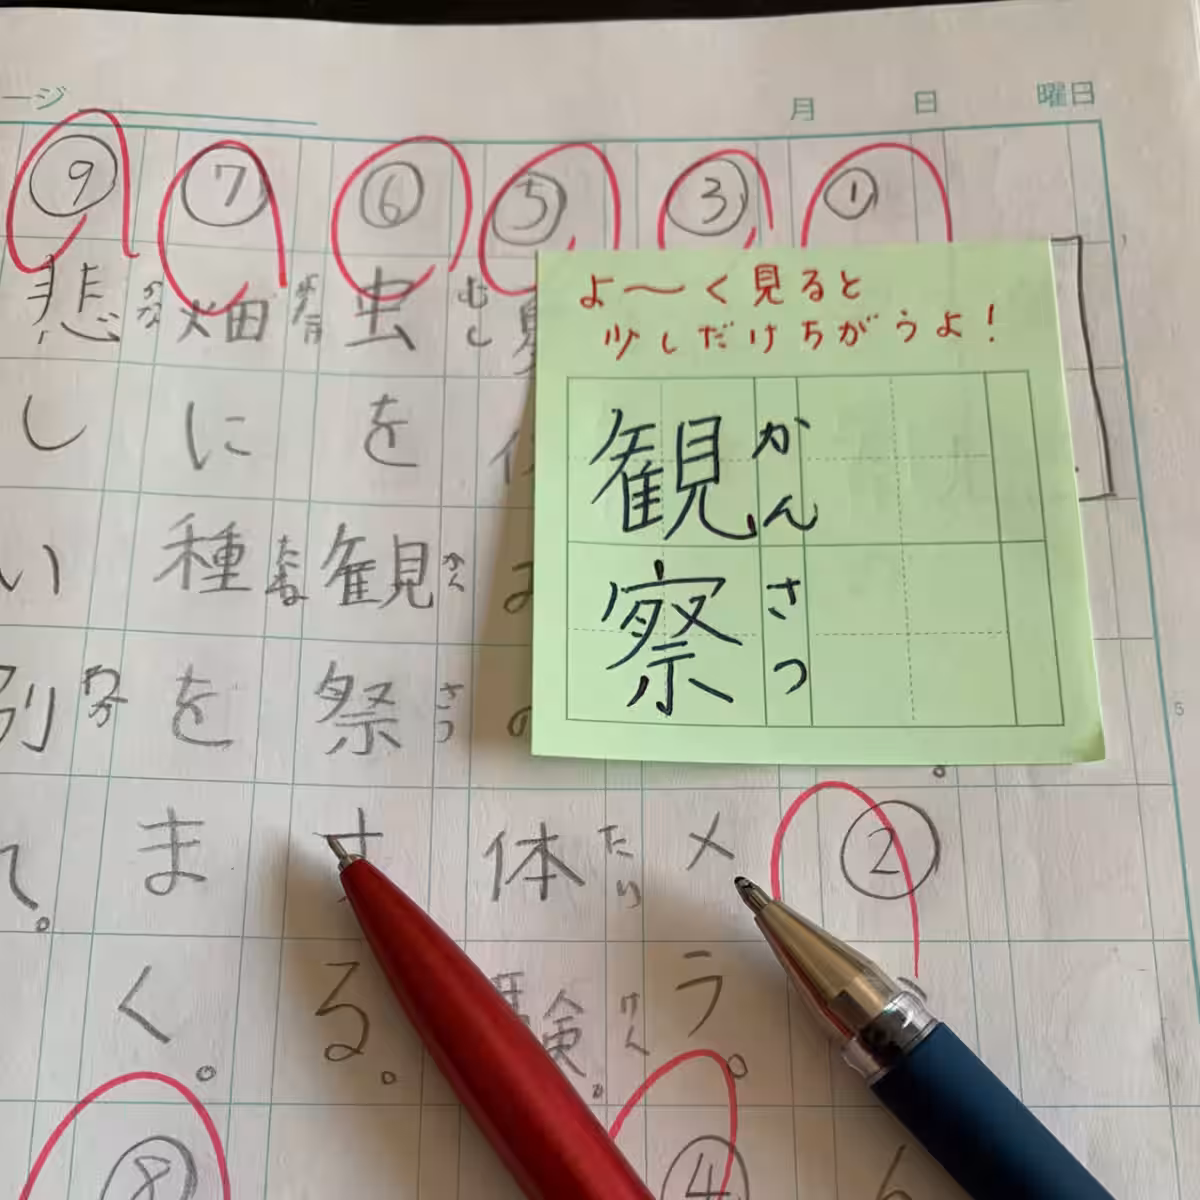 月 日 曜日
ージ
よ〜く見ると
少しだけちがうよ！
観察
かんさつ
①
②
③
メラ。
④
⑤
体験。
たいけん
⑥
虫を観祭する。
むし かん さつ
⑦
畑に種をまく。
はたけ たね
⑧
⑨
悲しい別
かな わか
5